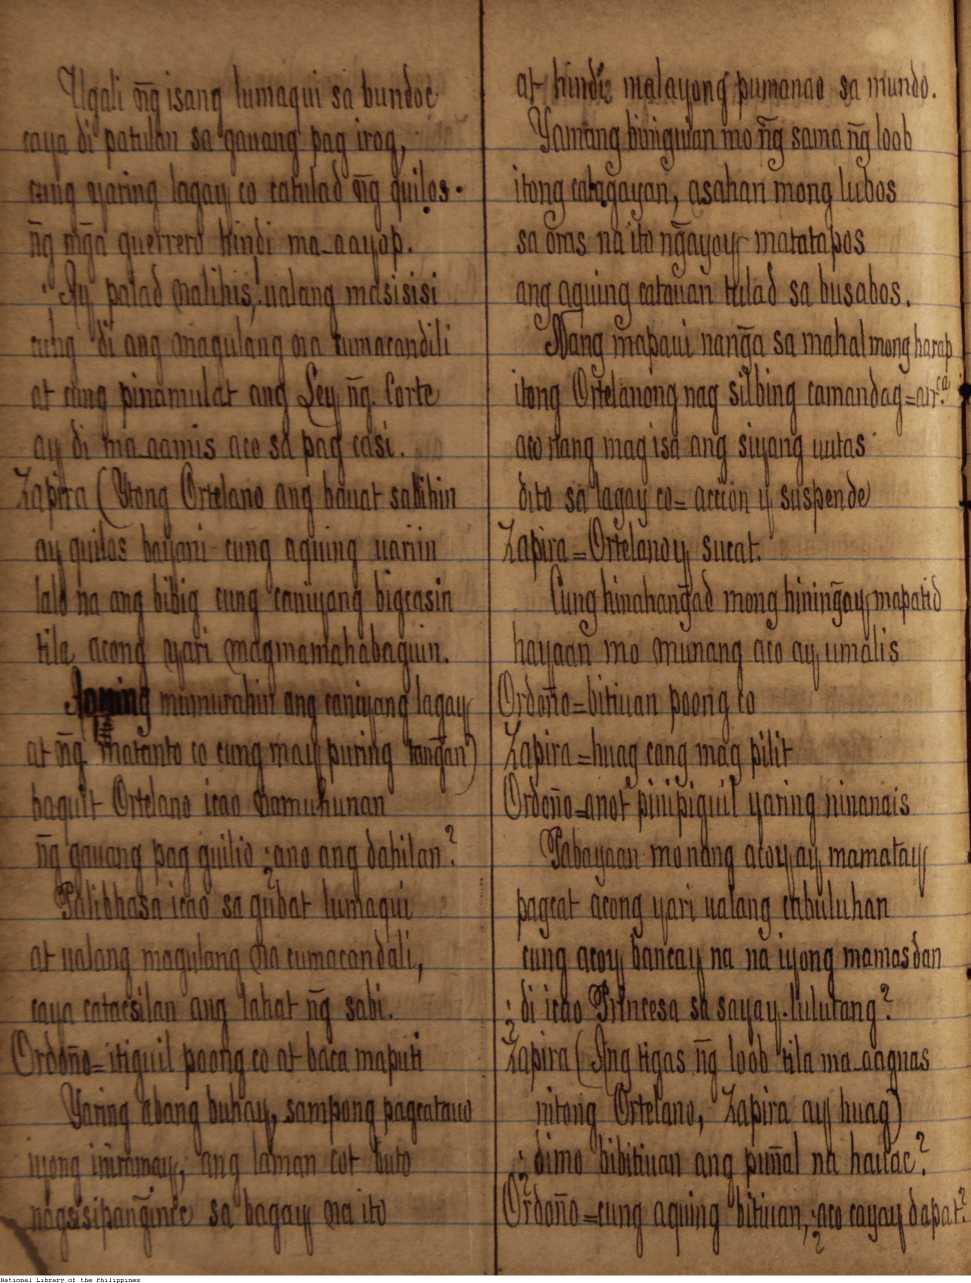 Ugali ñg isang lumaqui sa bundoc
caya di patulan sa gauang pag irog,
cung yaring lagay co catulad ñg quilos.
ñg mḡa guerrero hindi ma-aayop.
Ay palad malihis, ualang masisisi
cung di ang magulang na tumacandili
at cung pinamulat ang Ley ñg Corte
ay di ma-aamis aco sa pag casi.
Zapira (Ytong Ortelano ang bauat sabihin
ay quilos bayani cung aquing uariin
lalo na ang bibig cung caniyang bigcasin
tila acong yari magmamahabaguin.
mumurahin ang caniyang lagay
at ñg matanto co cung may puring tangan)
baquit Ortelano icao namuhunan
ñg gauang pag quilio ¿ano ang dahilan?
Palibhasa icao sa gubat lumaqui
at ualang magulang na cumacandili,
caya catacsilan ang lahat ñg sabi.
Ordoño=itiguil poong co at baca maputi
Yaring abang buhay, sampong pagcatauo
iyong inimmay, ang laman cot buto
nagsisipanginic sa bagay na ito
at hindi malayong pumanao sa mundo.
Yamang biniguian mo ñg sama ñg loob
itong catagayan, asahan mong lubos
sa oras na ito ngayoy matatapos
ang aquing catauan tulad sa busabos.
Nang mapaui nanga sa mahal mong harap
itong Ortelanong nag silbing camandag=air.ca
aco nang mag isa ang siyang uutas
dito sa lagay co= accion y suspende
Zapira=Ortelanoy sucat.
Cung hinahangad mong hiningay mapatid
hayaan mo munang aco ay umalis
Ordoño=bitiuan poong co
Zapira=huag cang mag pilit
Ordoño=anot pinipiguil yaring ninanais
Pabayaan mo nang acoy ay mamatay
pagcat acong yari ualang cabuluhan
cung acoy bancay na na iyong mamasdan
¿di icao Princesa sa sayay lulutang?
Zapira (Ang tigas ñg loob tila ma-aagnas
nitong Ortelano, Zapira ay huag)
¿dimo bibitiuan ang puñal na hauac?
Ordoño=cung aquing bitiuan, ¿aco cayay dapat?
National Library of the Philippines